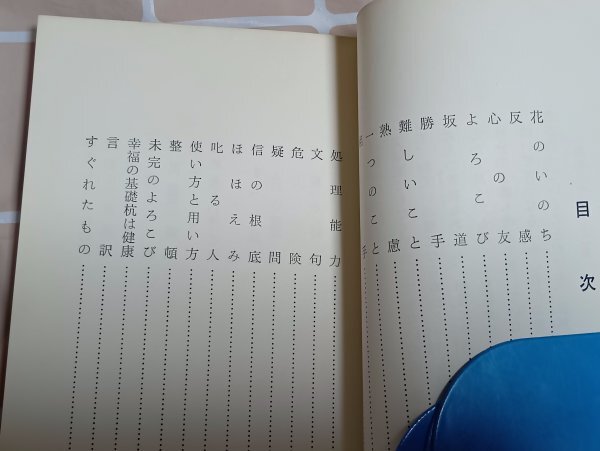 目次
花のいのち
反感
心の友
よろこび
坂道
勝手
難しいこと
熟慮
一つのこと
手
処理能力
文句
危険
疑問
信の根底
ほほえみ
叱る人
使い方と用い方
整頓
未完のよろこび
幸福の基礎杭は健康
言訳
すぐれたもの